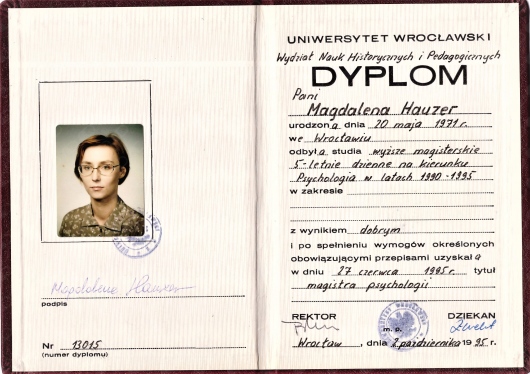 Magdalena Hauzer
podpis
Nr 13015
(numer dyplomu)
UNIWERSYTET WROCŁAWSKI
Wydział Nauk Historycznych i Pedagogicznych
DYPLOM
Pani
Magdalena Hauzer
urodzona dnia 20 maja 1971 r.
we Wrocławiu
odbyła studia wyższe magisterskie
5-letnie dzienne na kierunku
Psychologia w latach 1990-1995
w zakresie
z wynikiem dobrym
i po spełnieniu wymogów określonych
obowiązującymi przepisami uzyskała
w dniu 27 czerwca 1995 r. tytuł
magistra psychologii
REKTOR DZIEKAN
m. p.
Wrocław, dnia 2 października 1995 r.